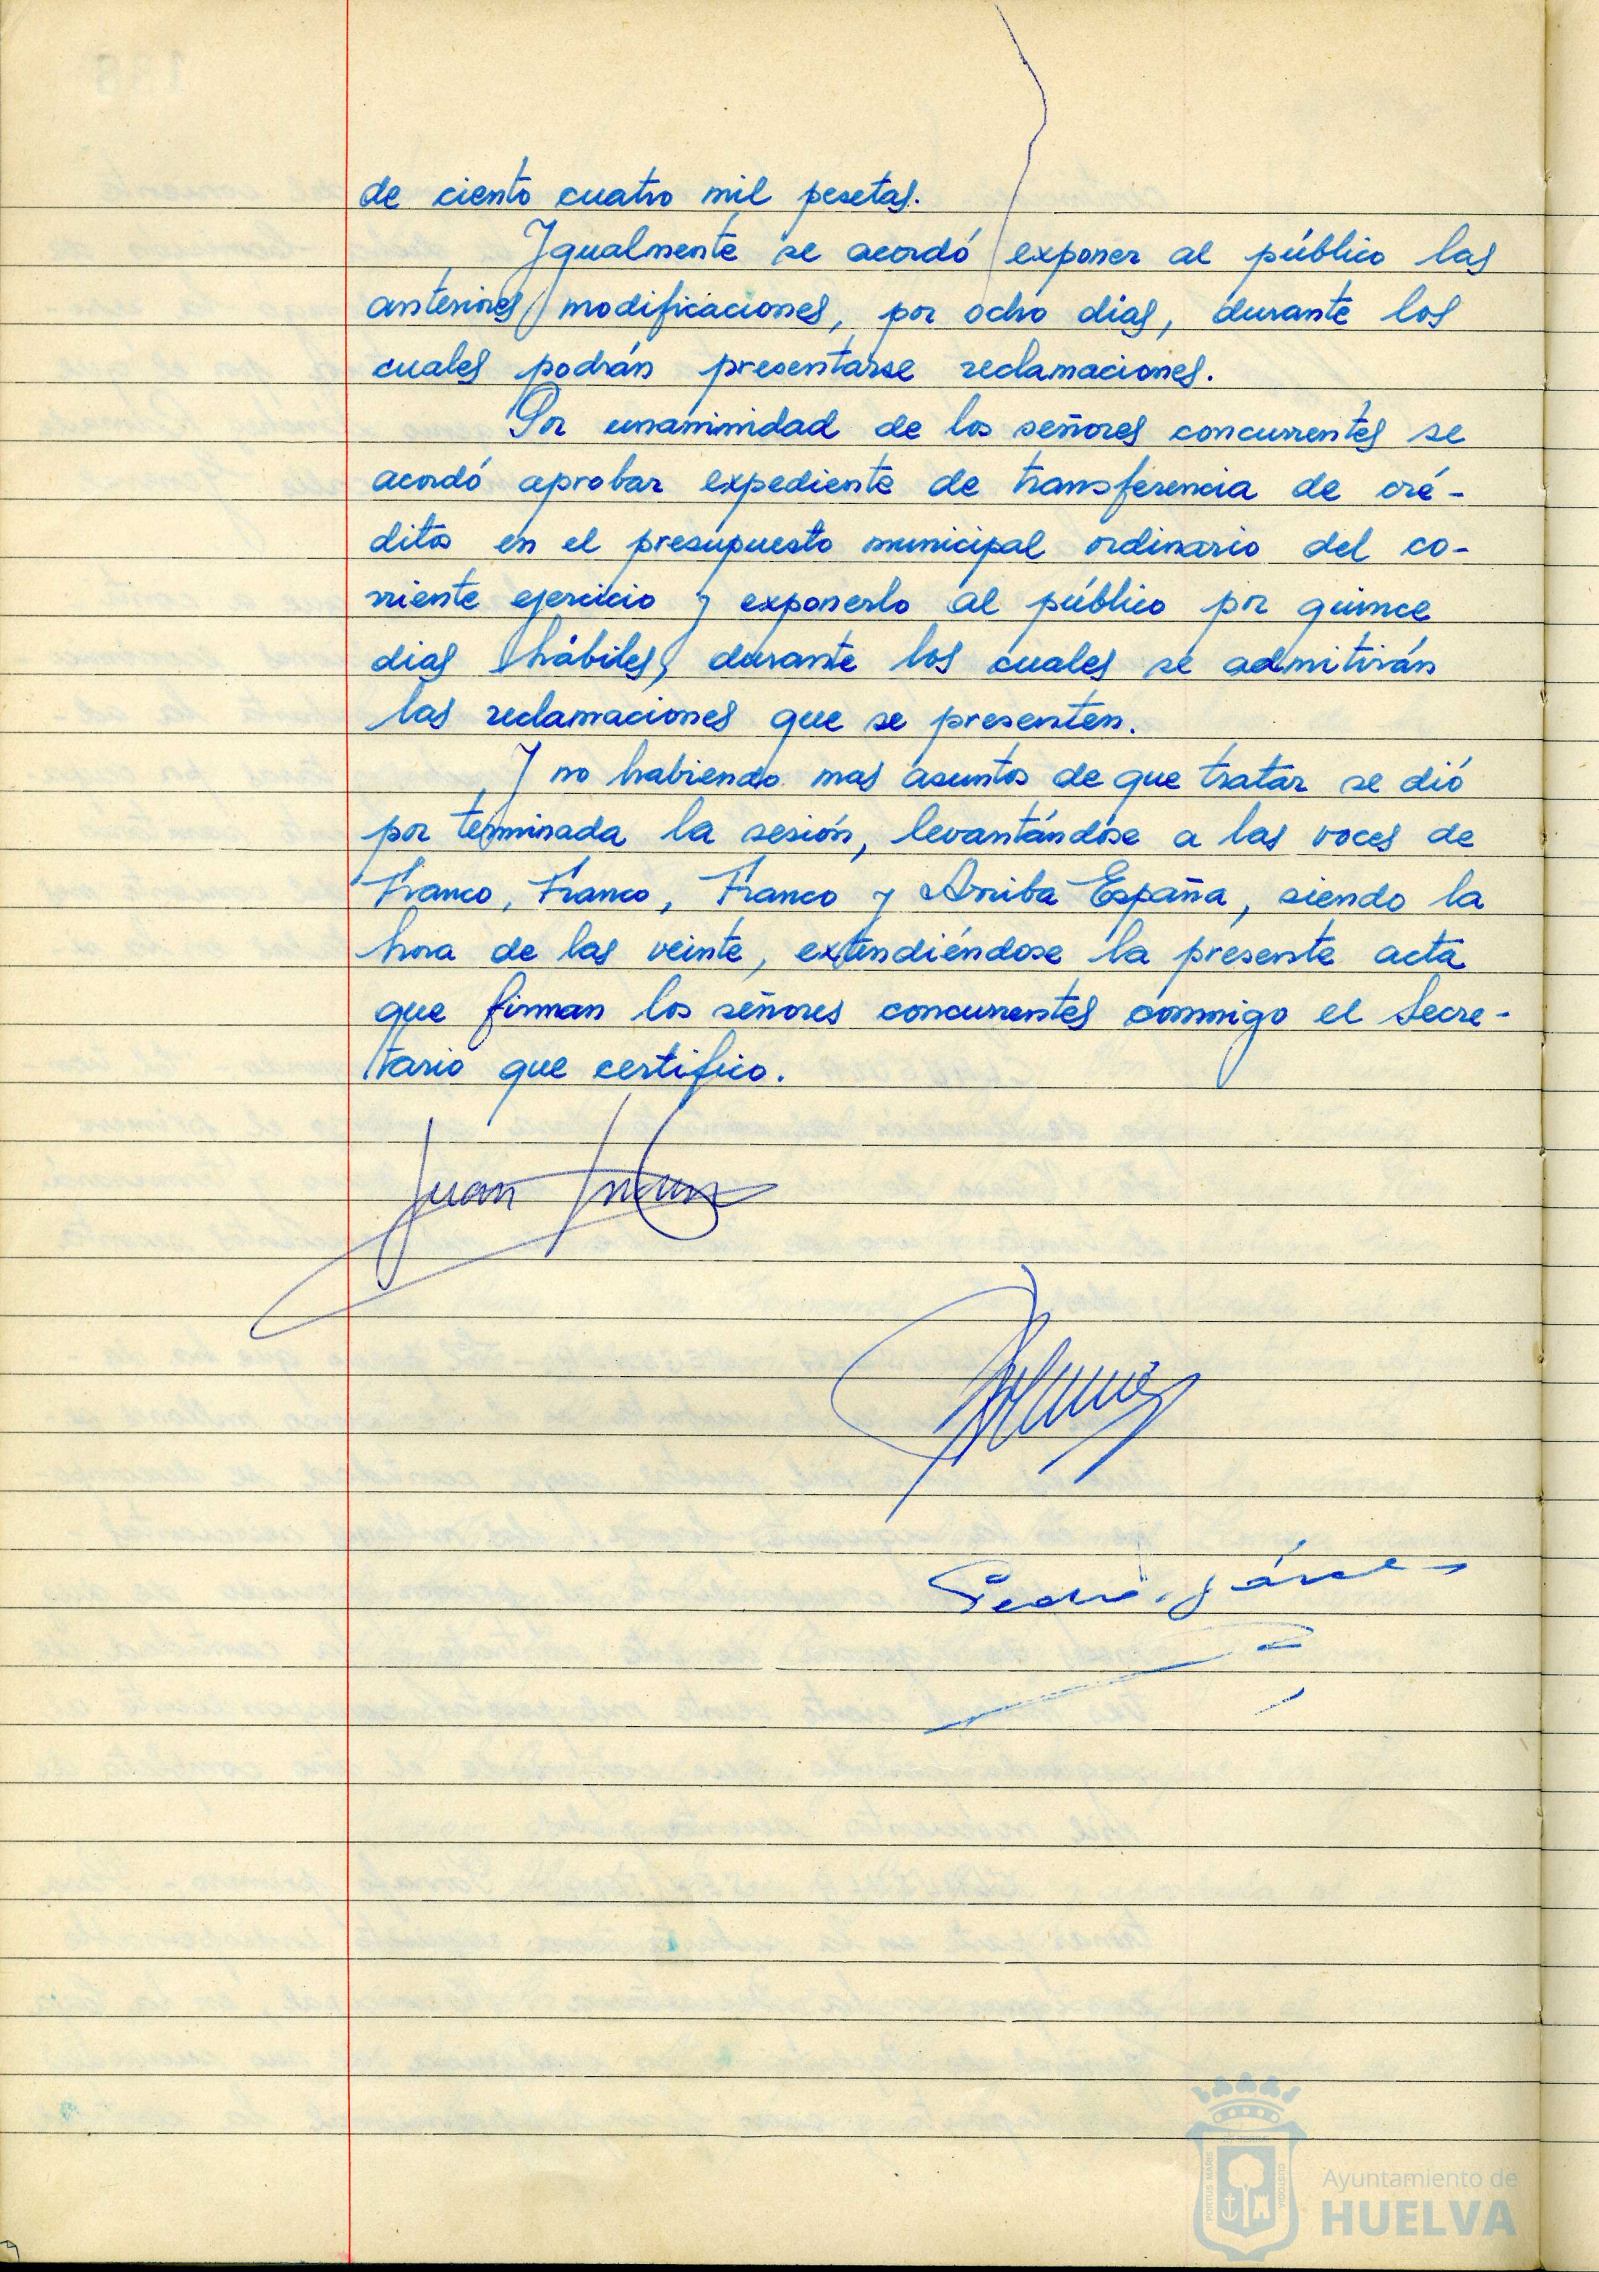 de ciento cuatro mil pesetas.
Igualmente se acordó exponer al público las
anteriores modificaciones, por ocho dias, durante los
cuales podrán presentarse reclamaciones.
Por unanimidad de los señores concurrentes se
acordó aprobar expediente de transferencia de cré-
ditos en el presupuesto municipal ordinario del co-
rriente ejercicio y exponerlo al público por quince
dias hábiles, durante los cuales se admitirán
las reclamaciones que se presenten.
Y no habiendo mas asuntos de que tratar se dió
por terminada la sesión, levantándose a las voces de
Franco, Franco, Franco y Arriba España, siendo la
hora de las veinte, extendiéndose la presente acta
que firman los señores concurrentes conmigo el Secre-
tario que certifico.
Juan
Pedro
PORTUS MARIS
CUSTODIA
Ayuntamiento de
HUELVA